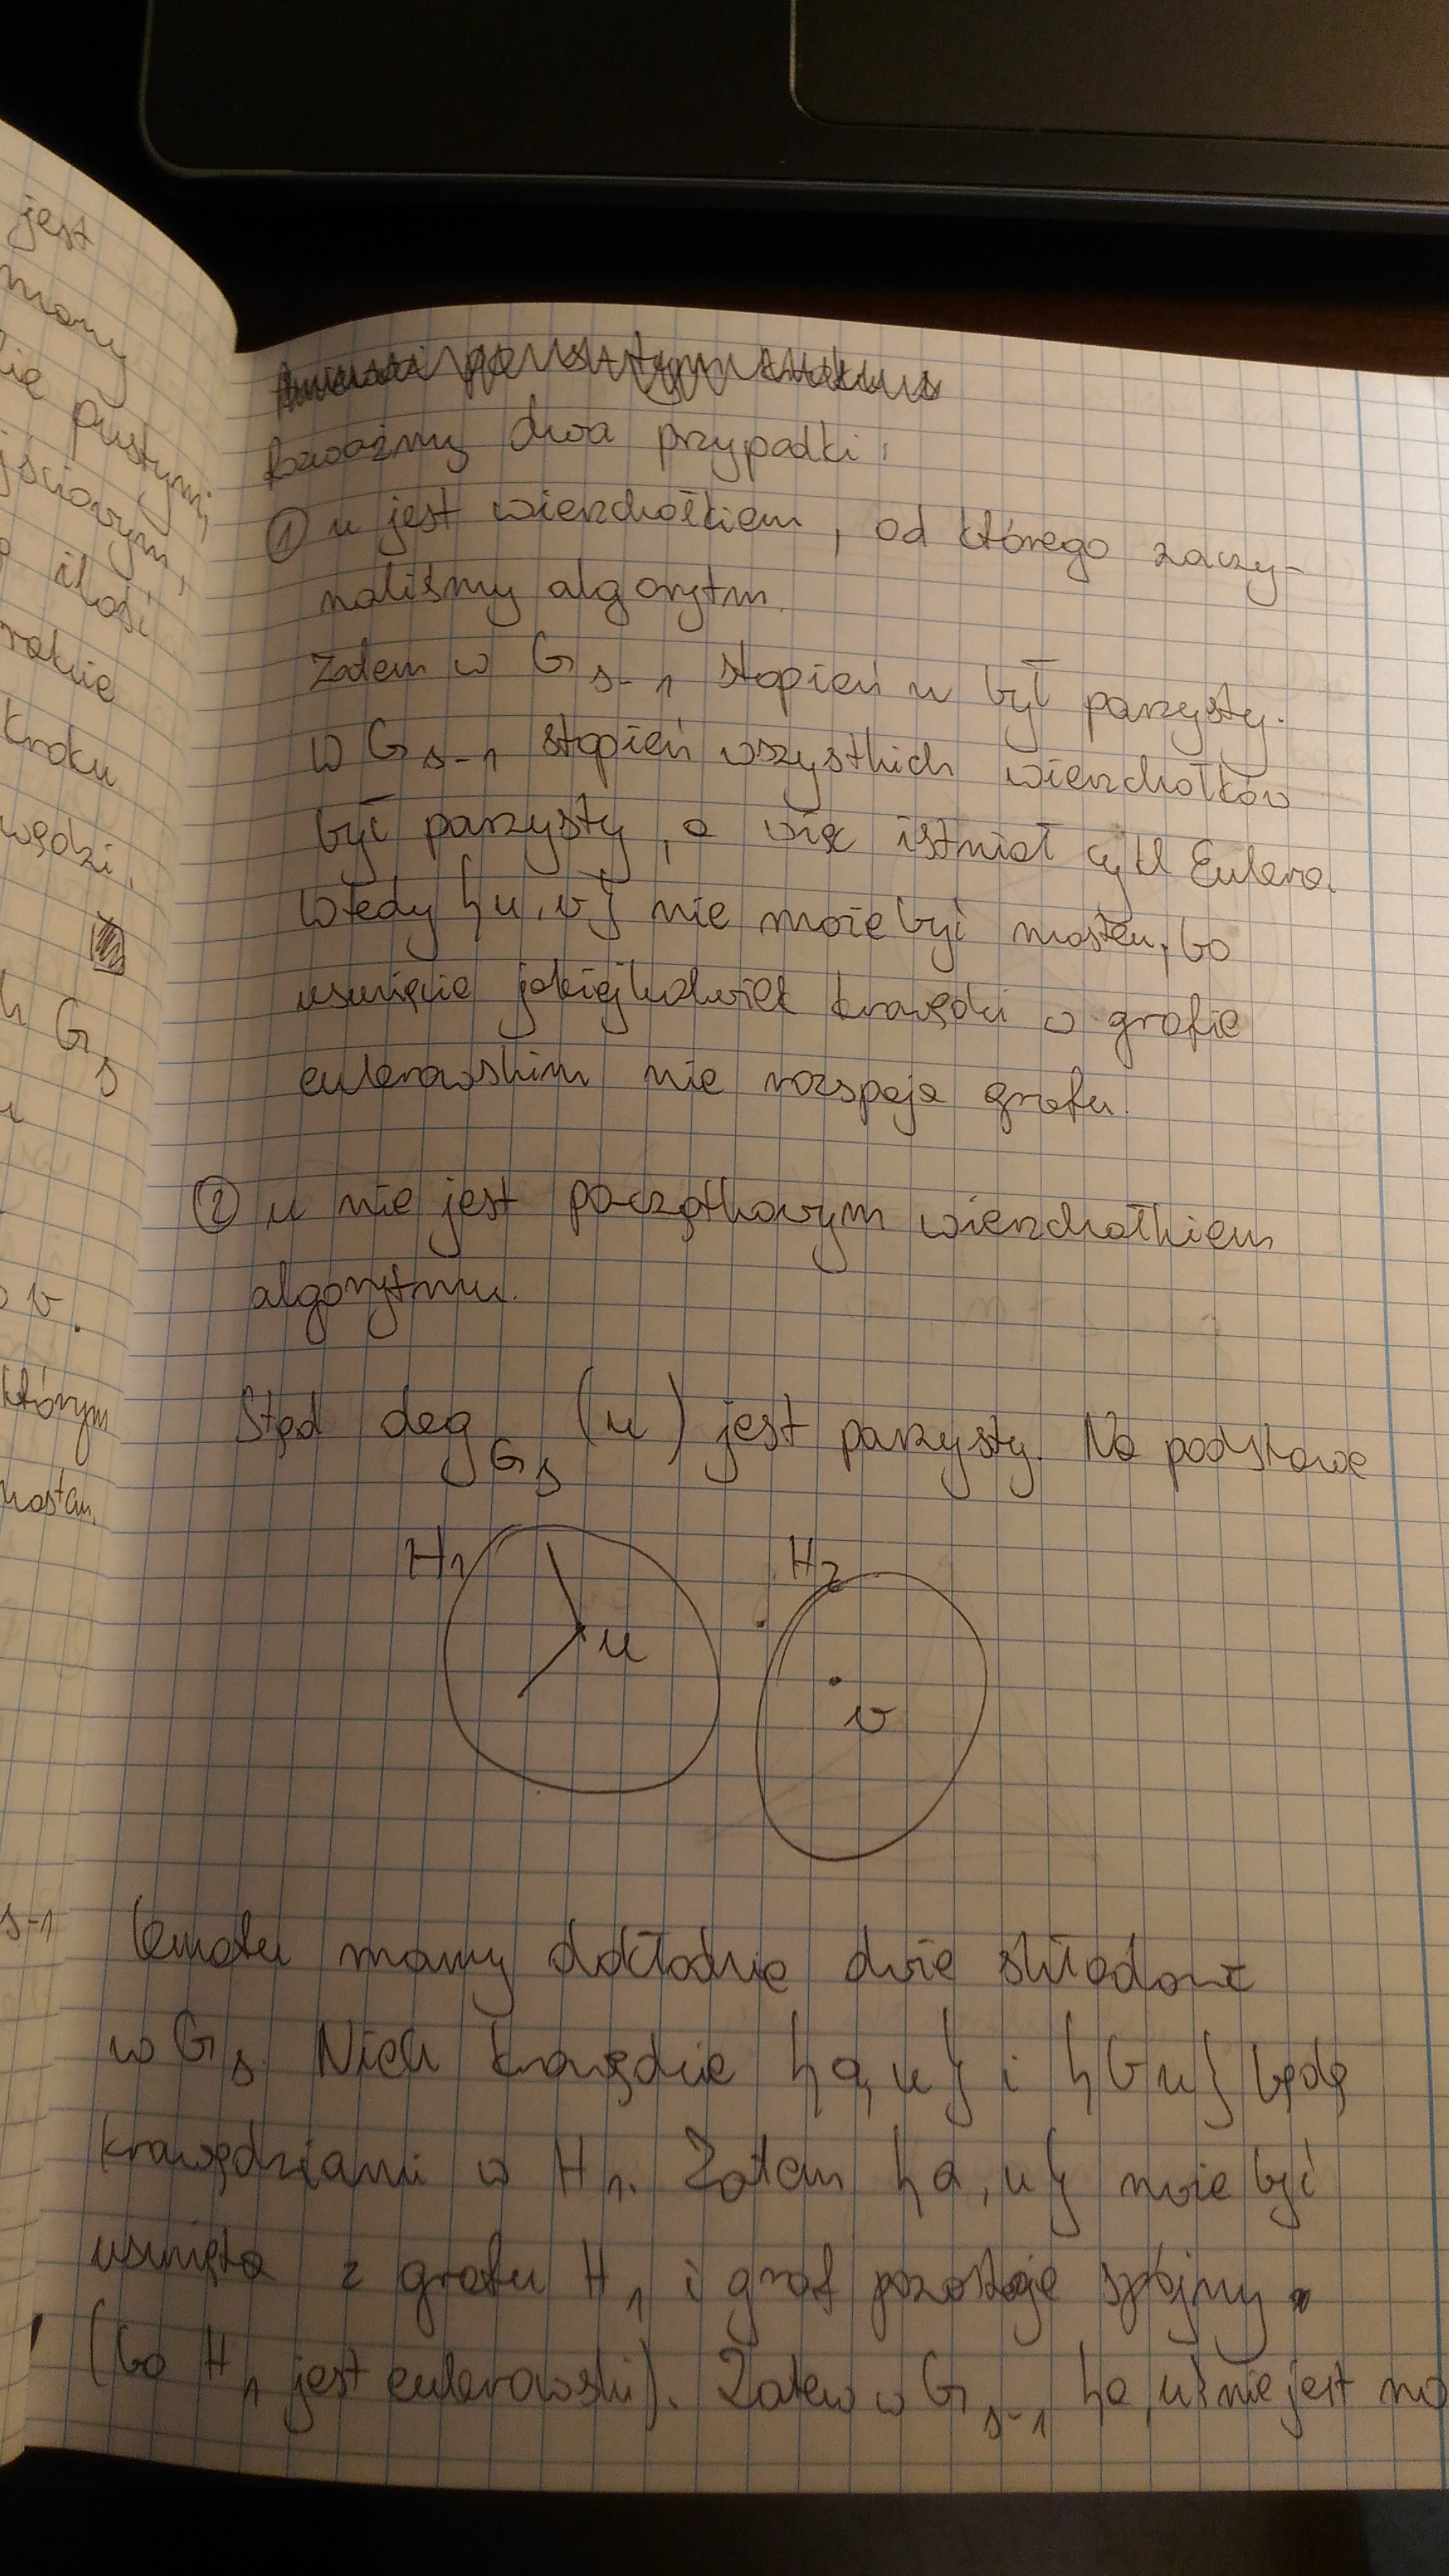 jest
mamy
pustymi,
ilości
takie
kroku
G_s
v.
którym
mostem.
s-1
Rozważmy dwa przypadki:
① u jest wierzchołkiem, od którego zaczy-
naliśmy algorytm.
Zatem w G_{s-1} stopień u był parzysty.
W G_{s-1} stopień wszystkich wierzchołków
był parzysty, a więc istniał cykl Eulera.
Wtedy {u,v} nie może być mostem, bo
usunięcie jakiejkolwiek krawędzi w grafie
eulerowskim nie rozspaja grafu.
② u nie jest początkowym wierzchołkiem
algorytmu.
Stąd deg_{G_s}(u) jest parzysty. Na podstawie
H_1 H_2
u
v
lematu mamy dokładnie dwie składowe
w G_s. Niech krawędzie {a,u} i {b u} będą
krawędziami w H_1. Zatem {a,u} może być
usunięta z grafu H_1 i graf pozostaje spójny.
(bo H_1 jest eulerowski). Zatem w G_{s-1} {a,u} nie jest mo